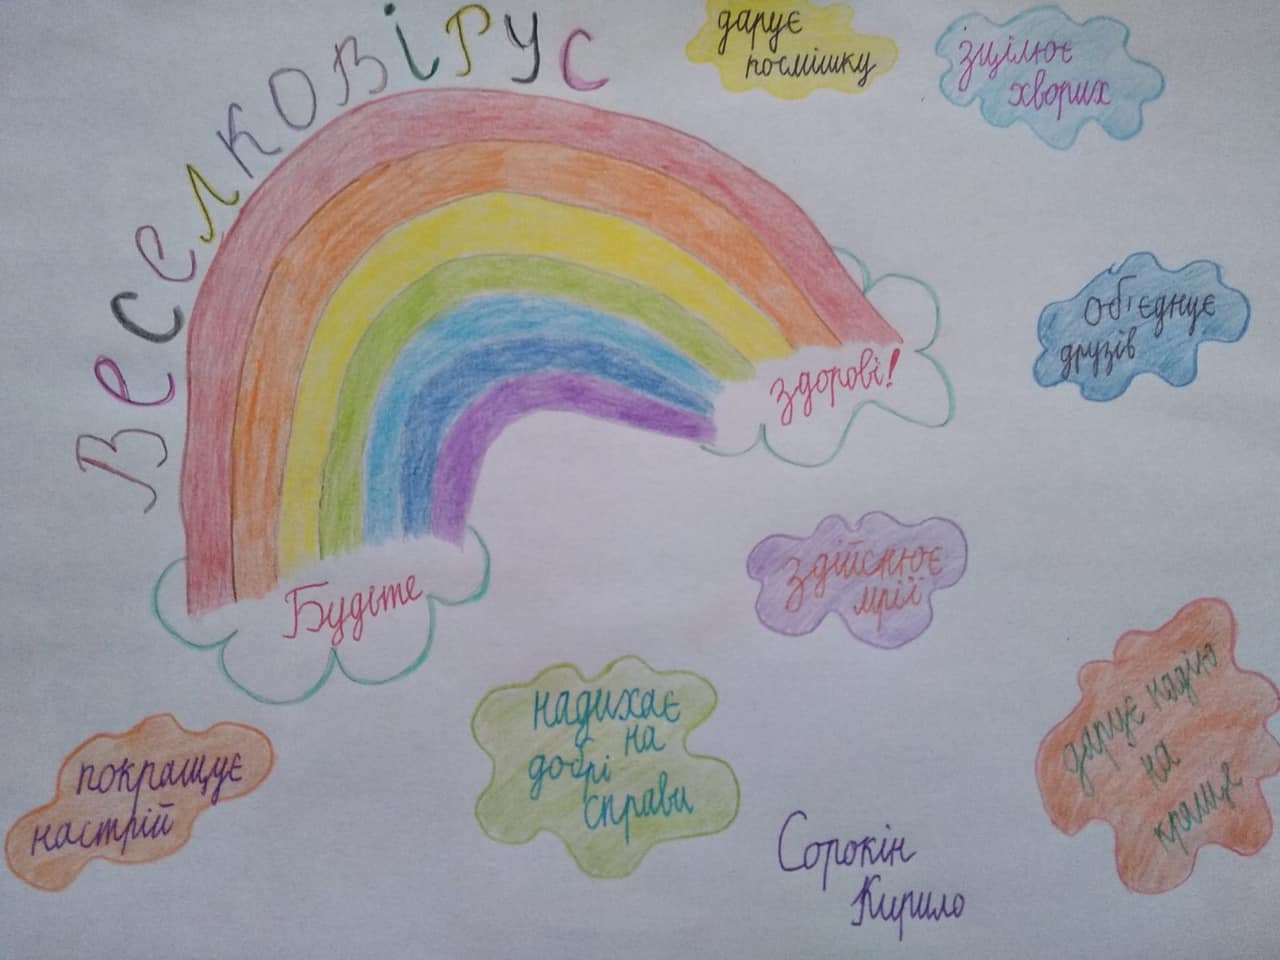 Веселковірус
дарує
посмішку
зцілює
хворих
об'єднує
друзів
здорові!
Будьте
здійснює
мрії
надихає
на
добрі
справи
дарує надію
на
краще
покращує
настрій
Сорокін
Кирило